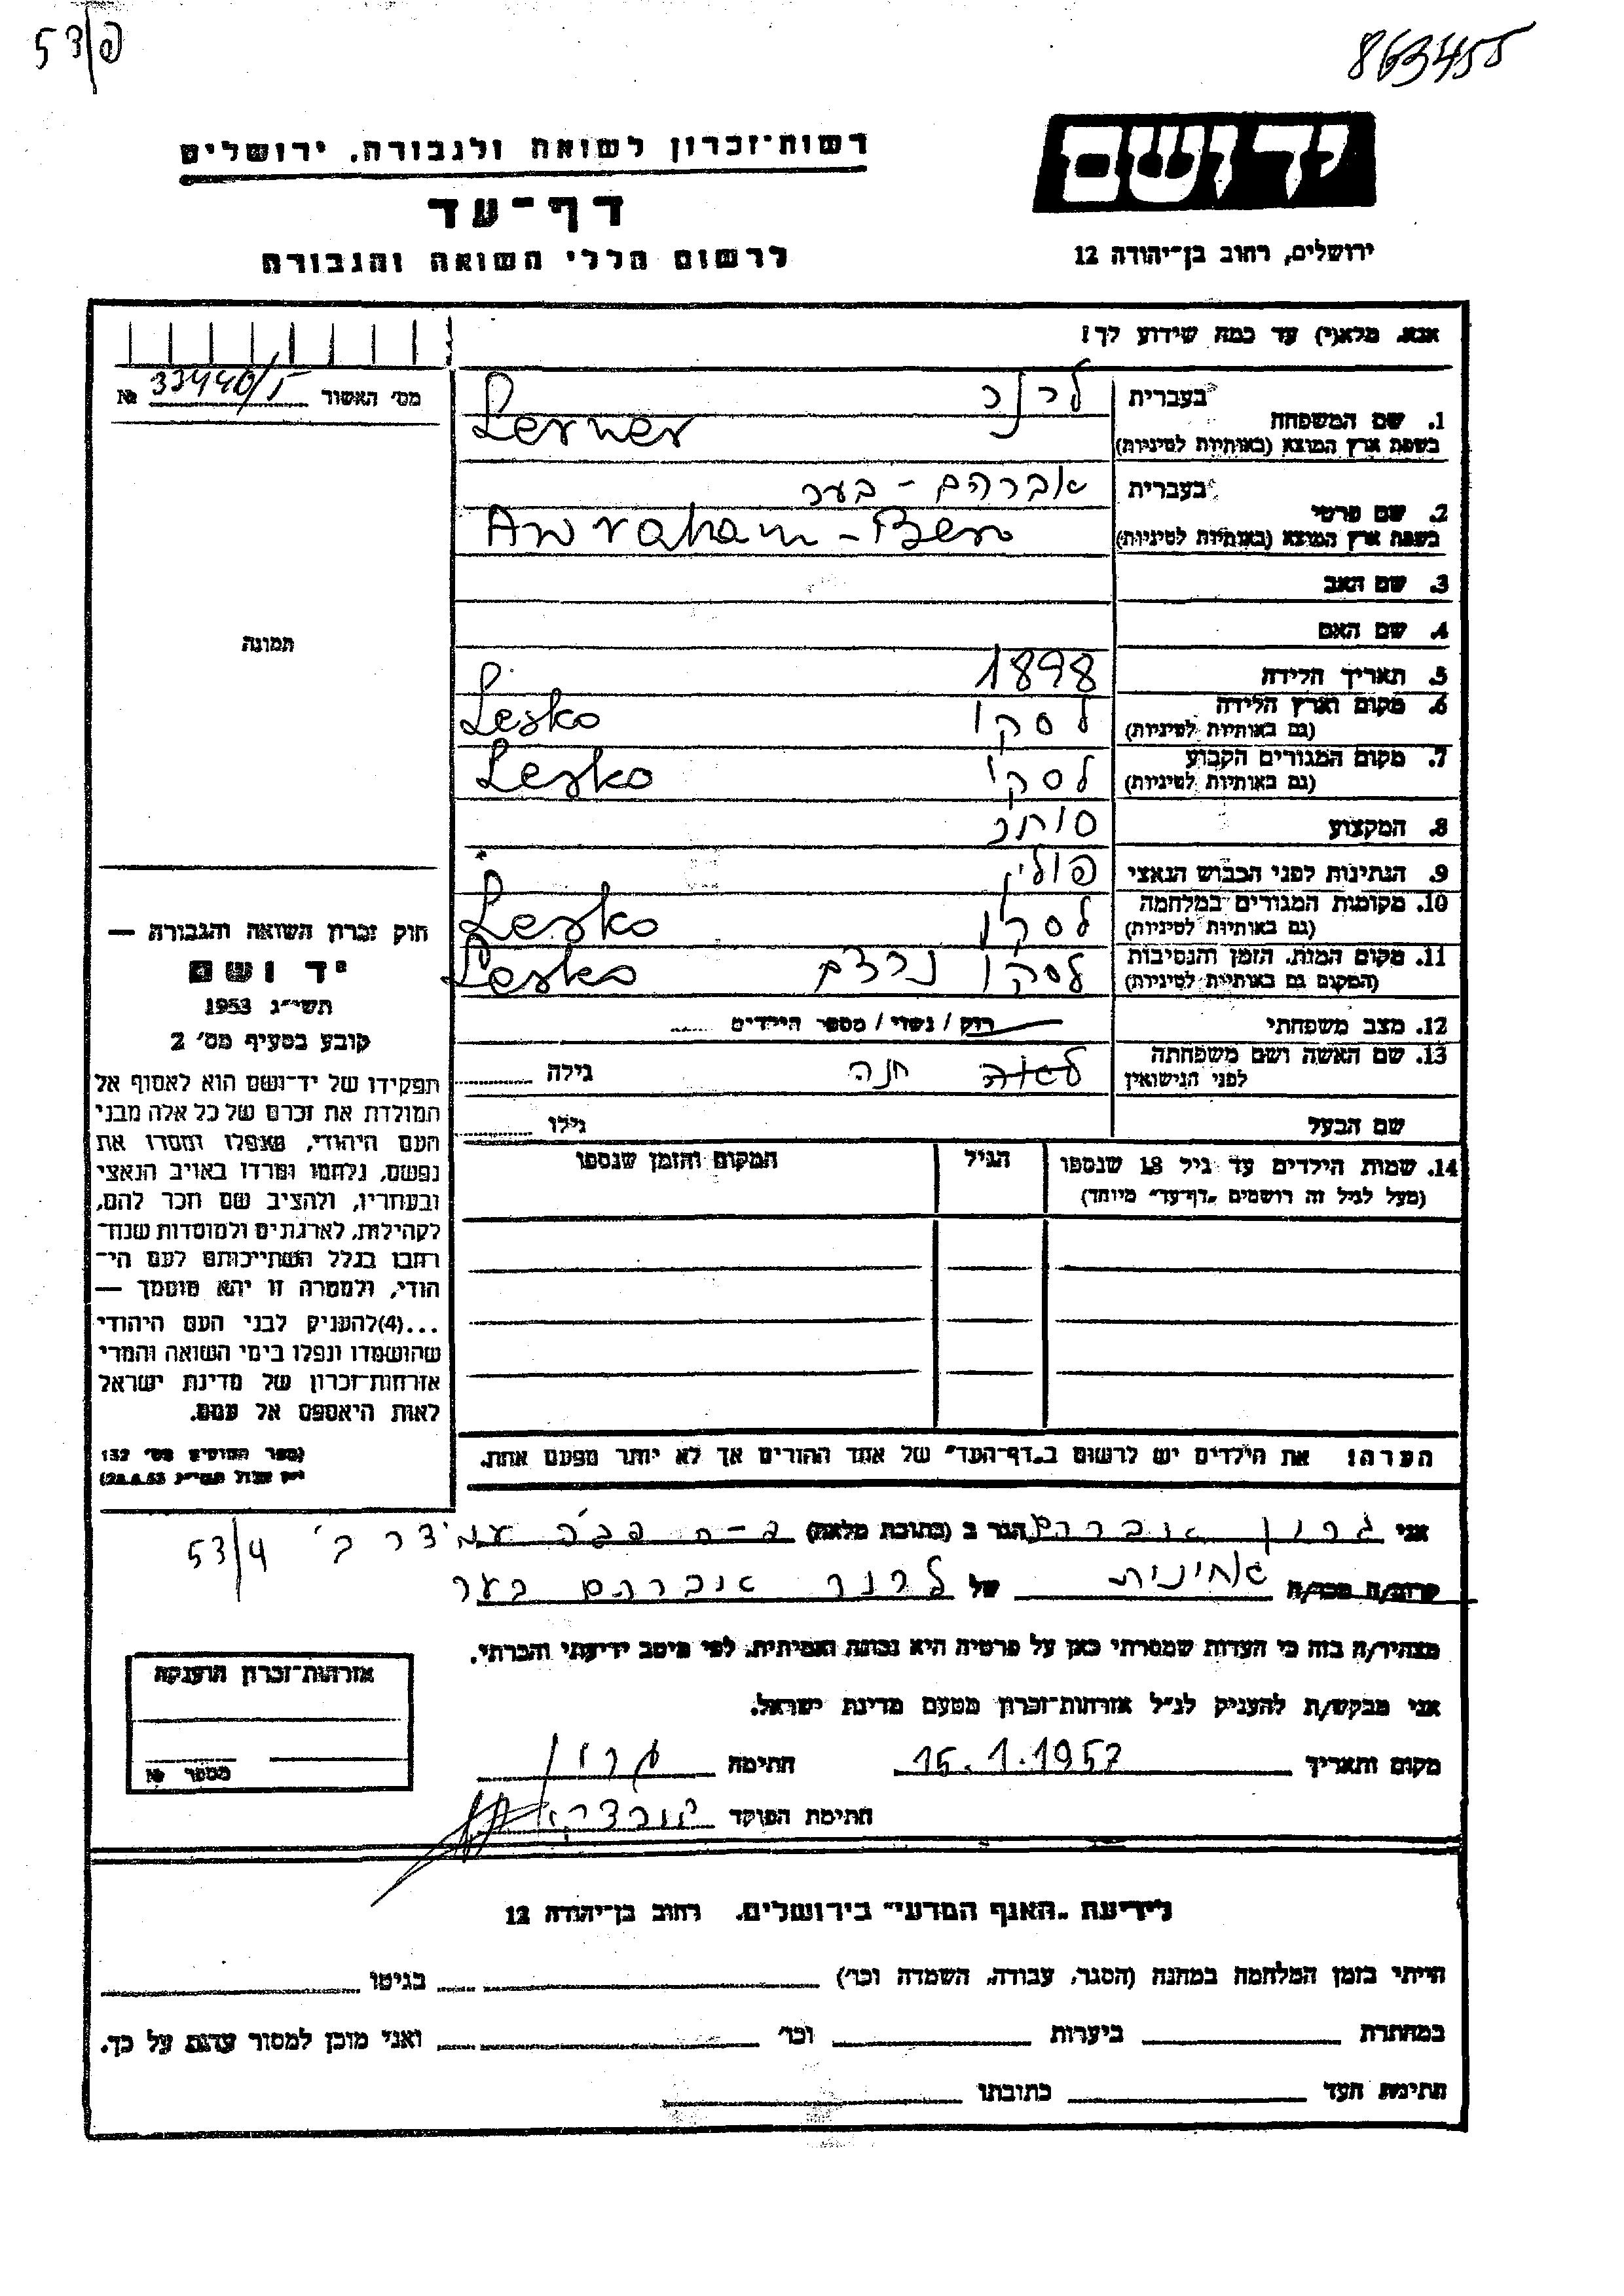 53/פ
863455
יד ושם
ירושלים, רחוב בן־יהודה 12
רשות־זכרון לשואה ולגבורה, ירושלים
דף־עד
לרשום חללי השואה והגבורה
אנא, מלא(י) עד כמה שידוע לך!
מס׳ האשור № 33440/5
1. שם המשפחה בעברית לרנר
בשפת ארץ המוצא (באותיות לטיניות) Lerner
2. שם פרטי בעברית אברהם - בער
בשפת ארץ המוצא (באותיות לטיניות) Awraham - Ber
3. שם האב
4. שם האם
תמונה
5. תאריך הלידה 1898
6. מקום וארץ הלידה (גם באותיות לטיניות) לסקו Lesko
7. מקום המגורים הקבוע (גם באותיות לטיניות) לסקו Lesko
8. המקצוע סוחר
9. הנתינות לפני הכבוש הנאצי פולין
10. מקומות המגורים במלחמה (גם באותיות לטיניות) לסקו Lesko
11. מקום המות, הזמן והנסיבות (המקום גם באותיות לטיניות) לסקו נרצח Lesko
12. מצב משפחתי רוק / נשוי / מספר הילדים
13. שם האשה ושם משפחתה לפני הנישואין לאה חנה גילה
שם הבעל גילו
14. שמות הילדים עד גיל 18 שנספו הגיל המקום והזמן שנספו
(מעל לגיל זה רושמים „דף־עד״ מיוחד)
חוק זכרון השואה והגבורה —
יד ושם
תשי״ג 1953
קובע בסעיף מס׳ 2
תפקידו של יד־ושם הוא לאסוף אל
המולדת את זכרם של כל אלה מבני
העם היהודי, שנפלו ומסרו את
נפשם, נלחמו ומרדו באויב הנאצי
ובעוזריו, ולהציב שם וזכר להם,
לקהילות, לארגונים ולמוסדות שנח־
רבו בגלל השתייכותם לעם הי־
הודי, ולמטרה זו יהא מוסמך —
...(4) להעניק לבני העם היהודי
שהושמדו ונפלו בימי השואה והמרי
אזרחות־זכרון של מדינת ישראל
לאות היאספם אל עמם.
(ספר החוקים מס׳ 132
י״ז אלול תשי״ג 28.8.53)
הערה: את הילדים יש לרשום ב„דף־העד״ של אחד ההורים אך לא יותר מפעם אחת.
אני גרון אברהם הגר ב (כתובת מלאה) עמידר ב׳ 53/4
קרוב/ה מכר/ה של לרנר אברהם בער
מצהיר/ה בזה כי העדות שמסרתי כאן על פרטיה היא נכונה ואמיתית, לפי מיטב ידיעתי והכרתי.
אני מבקש/ת להעניק לנ״ל אזרחות־זכרון מטעם מדינת ישראל.
מקום ותאריך 15.1.1957 חתימה גרון
חתימת הפוקד
אזרחות־זכרון הוענקה
מספר №
לידיעת „האגף המדעי״ בירושלים, רחוב בן־יהודה 12
הייתי בזמן המלחמה במחנה (הסגר, עבודה, השמדה וכו׳) בגיטו
במחתרת ביערות וכו׳ ואני מוכן למסור עדות על כך.
חתימת העד כתובתו